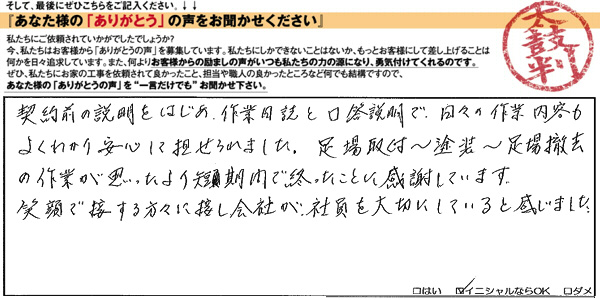 そして、最後にぜひこちらをご記入ください。↓↓
『あなた様の「ありがとう」の声をお聞かせください』
私たちにご依頼されていかがでしたでしょうか?
今、私たちはお客様から「ありがとうの声」を募集しています。私たちにしかできないことはないか、もっとお客様にして差し上げることは
何かを日々追求しています。また、何よりお客様からの励ましの声がいつも私たちの力の源になり、勇気付けてくれるのです。
ぜひ、私たちにお家の工事を依頼されて良かったこと、担当や職人の良かったところなど何でも結構ですので、
あなた様の「ありがとうの声」を"一言だけでも"お聞かせ下さい。
太鼓判
契約前の説明をはじめ、作業日誌と口答説明で、日々の作業内容も
よくわかり安心して担せられました。足場取付〜塗装〜足場撤去
の作業が思ったより短期間内で終ったことに感謝しています。
笑顔で接する方々に接し会社が、社員を大切にしていると感じました。
□はい ☑イニシャルならOK □ダメ